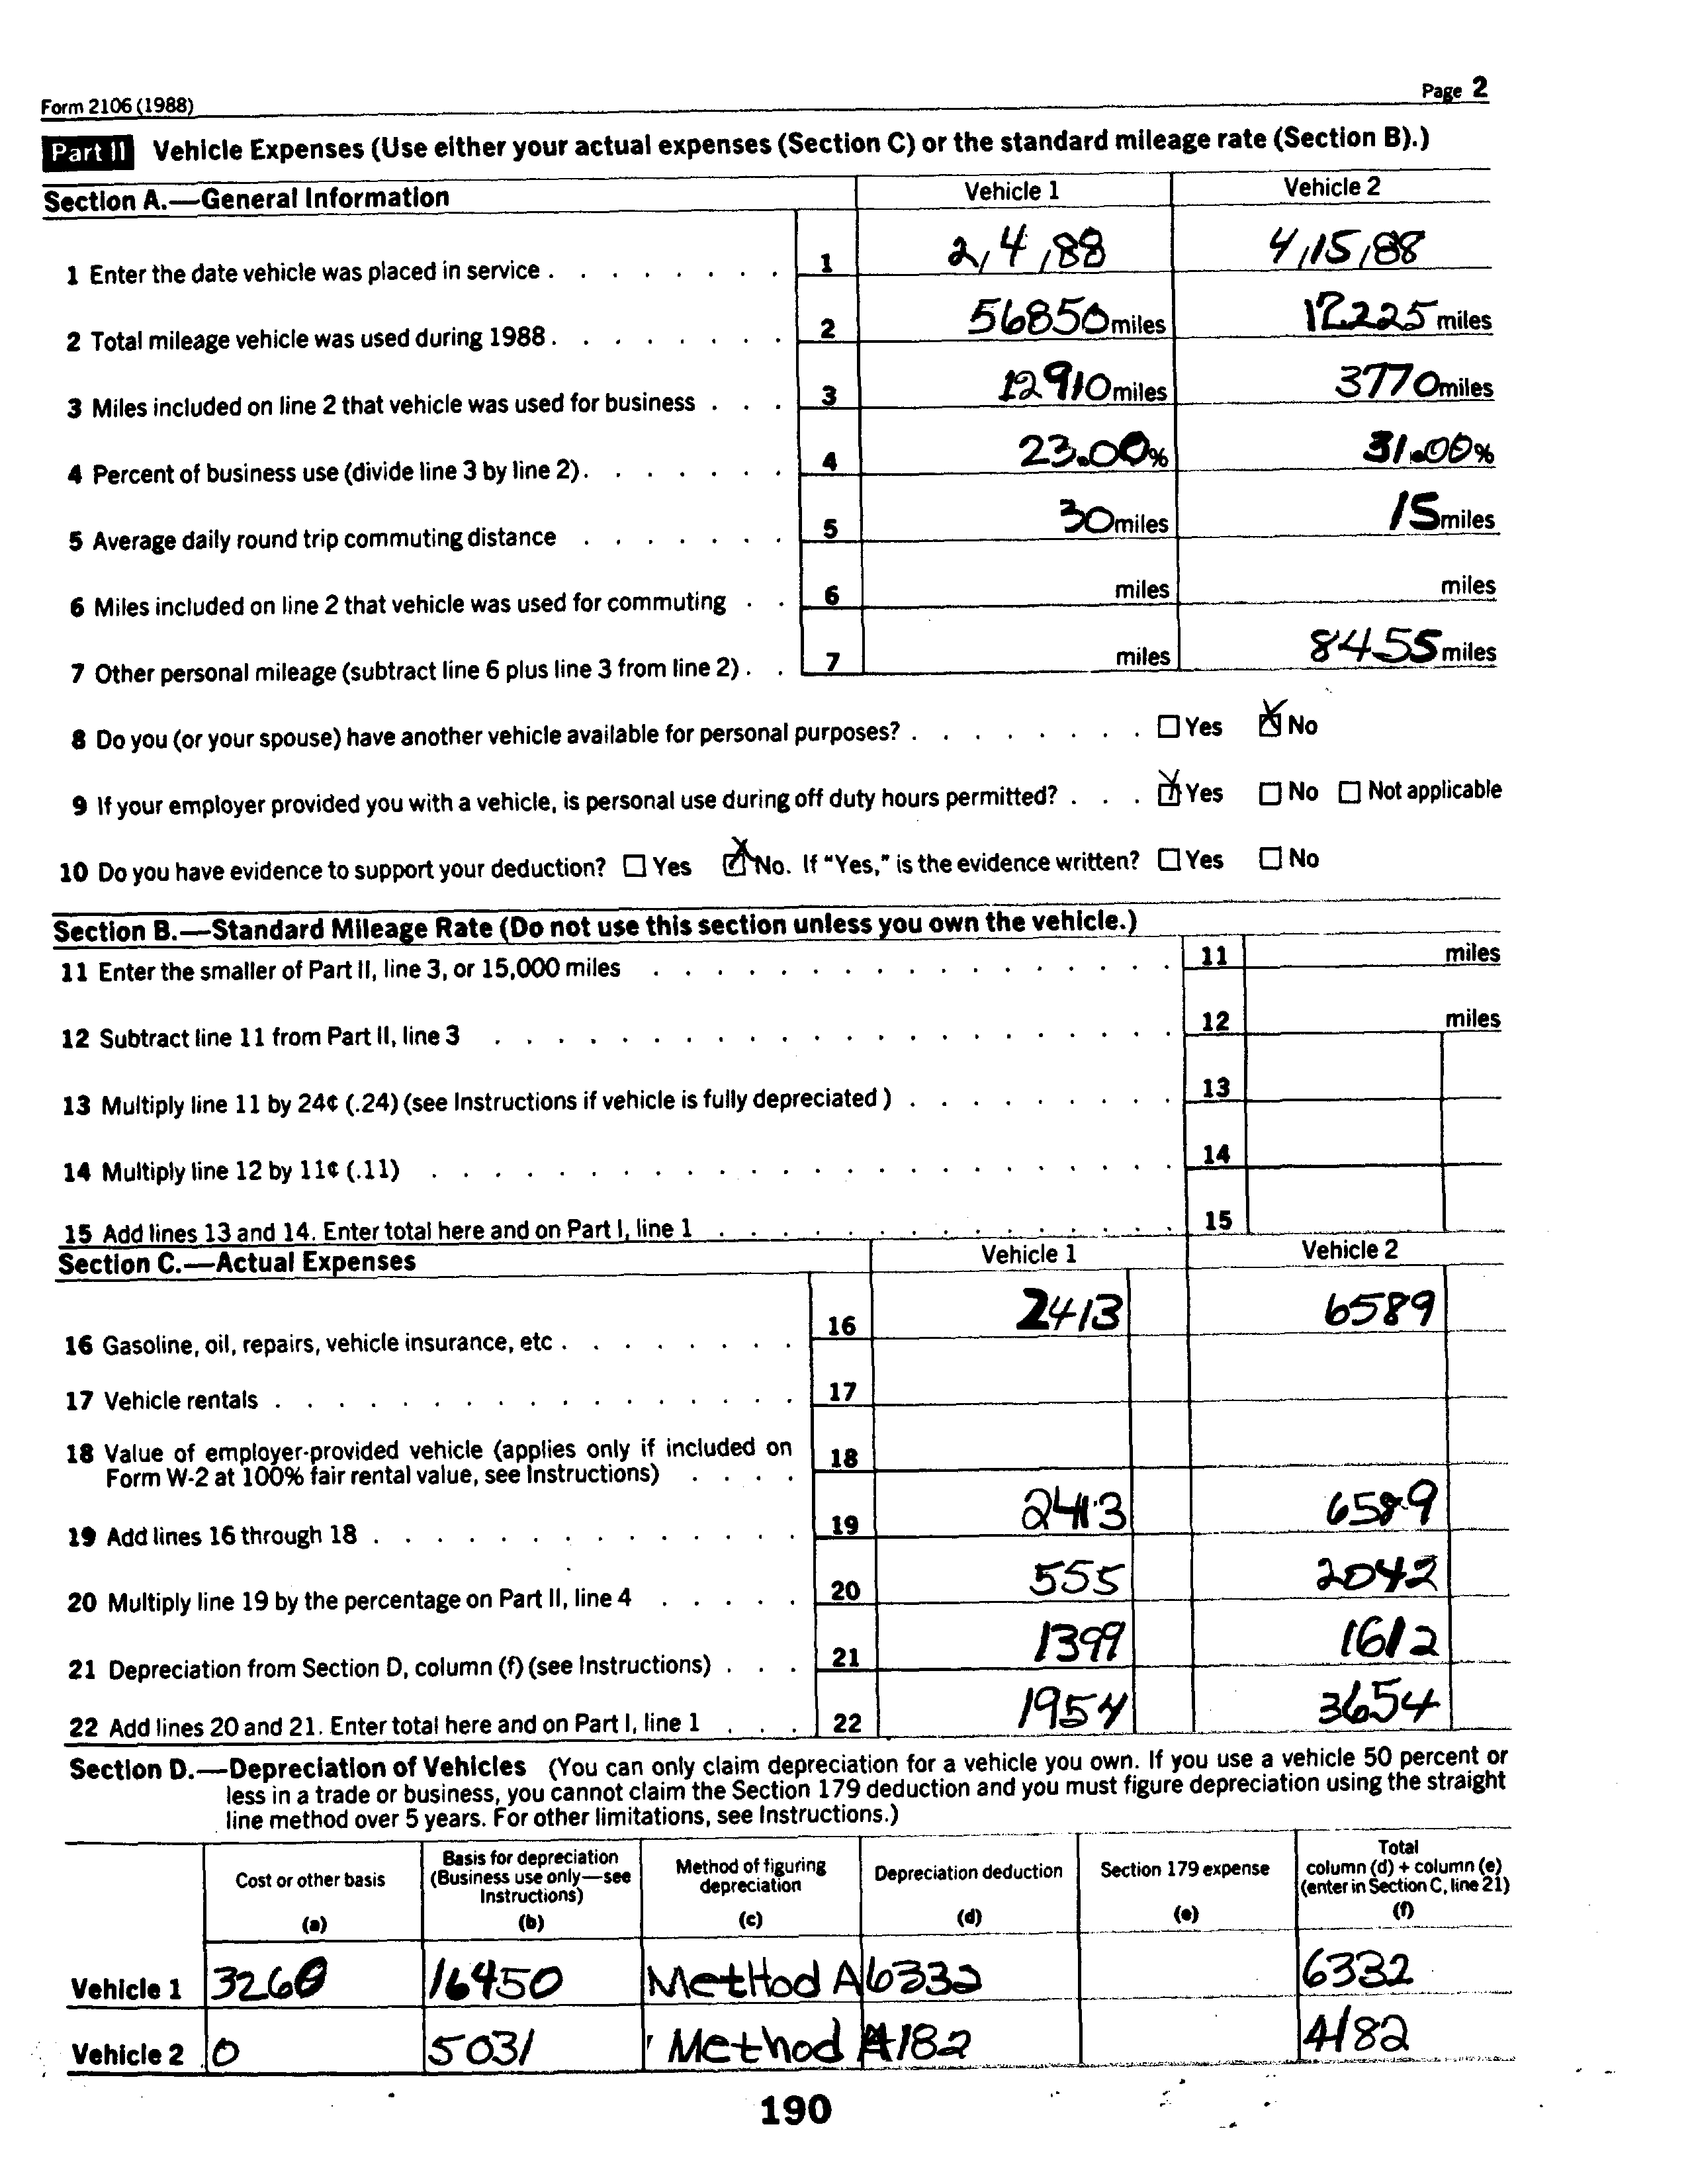 Form 2106 (1988) Page 2
Part II Vehicle Expenses (Use either your actual expenses (Section C) or the standard mileage rate (Section B).)
Section A.—General Information Vehicle 1 Vehicle 2
1 Enter the date vehicle was placed in service . . . . . . . . 1 2/4/88 4/15/88
2 Total mileage vehicle was used during 1988 . . . . . . . . 2 56850 miles 12225 miles
3 Miles included on line 2 that vehicle was used for business . . . 3 12910 miles 3770 miles
4 Percent of business use (divide line 3 by line 2) . . . . . . . 4 23.00% 31.00%
5 Average daily round trip commuting distance . . . . . . . 5 30 miles 15 miles
6 Miles included on line 2 that vehicle was used for commuting . . 6 miles miles
7 Other personal mileage (subtract line 6 plus line 3 from line 2) . . 7 miles 8455 miles
8 Do you (or your spouse) have another vehicle available for personal purposes? . . . . . . . . ☐ Yes ☒ No
9 If your employer provided you with a vehicle, is personal use during off duty hours permitted? . . . ☒ Yes ☐ No ☐ Not applicable
10 Do you have evidence to support your deduction? ☐ Yes ☒ No. If "Yes," is the evidence written? ☐ Yes ☐ No
Section B.—Standard Mileage Rate (Do not use this section unless you own the vehicle.)
11 Enter the smaller of Part II, line 3, or 15,000 miles . . . . . . . . . . . . . . . . . 11 miles
12 Subtract line 11 from Part II, line 3 . . . . . . . . . . . . . . . . . . . . . . 12 miles
13 Multiply line 11 by 24¢ (.24) (see Instructions if vehicle is fully depreciated ) . . . . . . . . . 13
14 Multiply line 12 by 11¢ (.11) . . . . . . . . . . . . . . . . . . . . . . . . 14
15 Add lines 13 and 14. Enter total here and on Part I, line 1 . . . . . . . . . . . . . . . 15
Section C.—Actual Expenses Vehicle 1 Vehicle 2
16 Gasoline, oil, repairs, vehicle insurance, etc . . . . . . . . 16 2413 6589
17 Vehicle rentals . . . . . . . . . . . . . . . . . 17
18 Value of employer-provided vehicle (applies only if included on 18
Form W-2 at 100% fair rental value, see Instructions) . . . .
19 Add lines 16 through 18 . . . . . . . . . . . . . . 19 2413 6589
20 Multiply line 19 by the percentage on Part II, line 4 . . . . . 20 555 2042
21 Depreciation from Section D, column (f) (see Instructions) . . . 21 1399 1612
22 Add lines 20 and 21. Enter total here and on Part I, line 1 . . . 22 1954 3654
Section D.—Depreciation of Vehicles (You can only claim depreciation for a vehicle you own. If you use a vehicle 50 percent or
less in a trade or business, you cannot claim the Section 179 deduction and you must figure depreciation using the straight
line method over 5 years. For other limitations, see Instructions.)
Cost or other basis (a) Basis for depreciation (Business use only—see Instructions) (b) Method of figuring depreciation (c) Depreciation deduction (d) Section 179 expense (e) Total column (d) + column (e) (enter in Section C, line 21) (f)
Vehicle 1 3260 16450 Method A 6332 6332
Vehicle 2 0 5031 Method 4182 4182
190